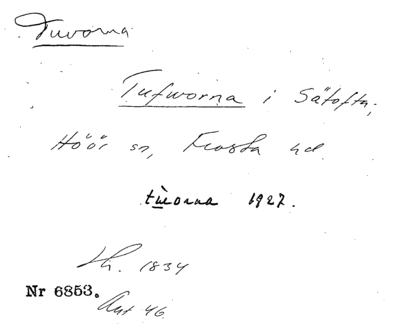 Tuvorna
Tufworna i Sätofta,
Höör sn, Frosta hd.
tùvorna 1927.
Lh. 1834
Nr 6853.
Ant 46